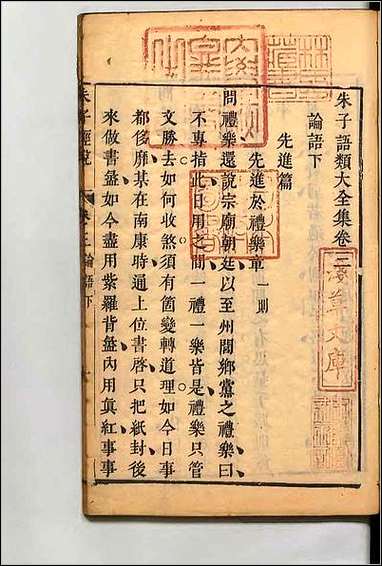 朱子語類大全集卷三
論語下
先進篇
先進於禮樂章一則
問禮樂還說宗廟朝廷以至州閭鄉黨之禮樂曰
不專指此日用之間一禮一樂皆是禮樂只管
文勝去如何收煞須有箇變轉道理如今日事
都侈靡某在南康時通上位書啓只把紙封後
來做書盝如今盡用紫羅背盝內用真紅事事
論語下
文庫